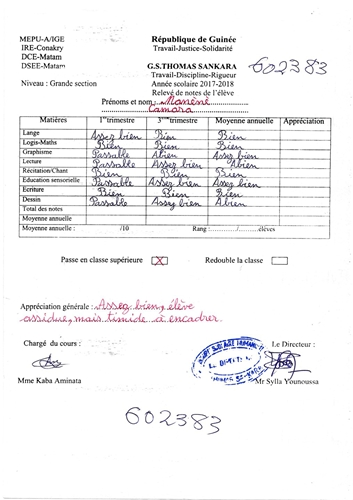 MEPU-A/IGE
IRE-Conakry
DCE-Matam
DSEE-Matam
République de Guinée
Travail-Justice-Solidarité
G.S.THOMAS SANKARA
Travail-Discipline-Rigueur
602383
Niveau : Grande section
Année scolaire 2017-2018
Relevé de notes de l'élève
Prénoms et nom : Manéné
Camara
Matières 1er trimestre 3ème trimestre Moyenne annuelle Appréciation
Langue Assez bien Bien Bien
Logis-Maths Bien Bien Bien
Graphisme Passable Abien Assez bien
Lecture Passable Assez bien Abien
Récitation/Chant Bien Bien Bien
Education sensorielle Passable Assez bien Assez bien
Ecriture Bien Bien Bien
Dessin Passable Assez bien Abien
Total des notes
Moyenne annuelle
Moyenne annuelle : /10 Rang : ......../......élèves
Passe en classe supérieure X Redouble la classe
Appréciation générale : Assez bien, élève
assidue, mais timide à encadrer.
Chargé du cours : Le Directeur :
Mme Kaba Aminata Mr Sylla Younoussa
602383